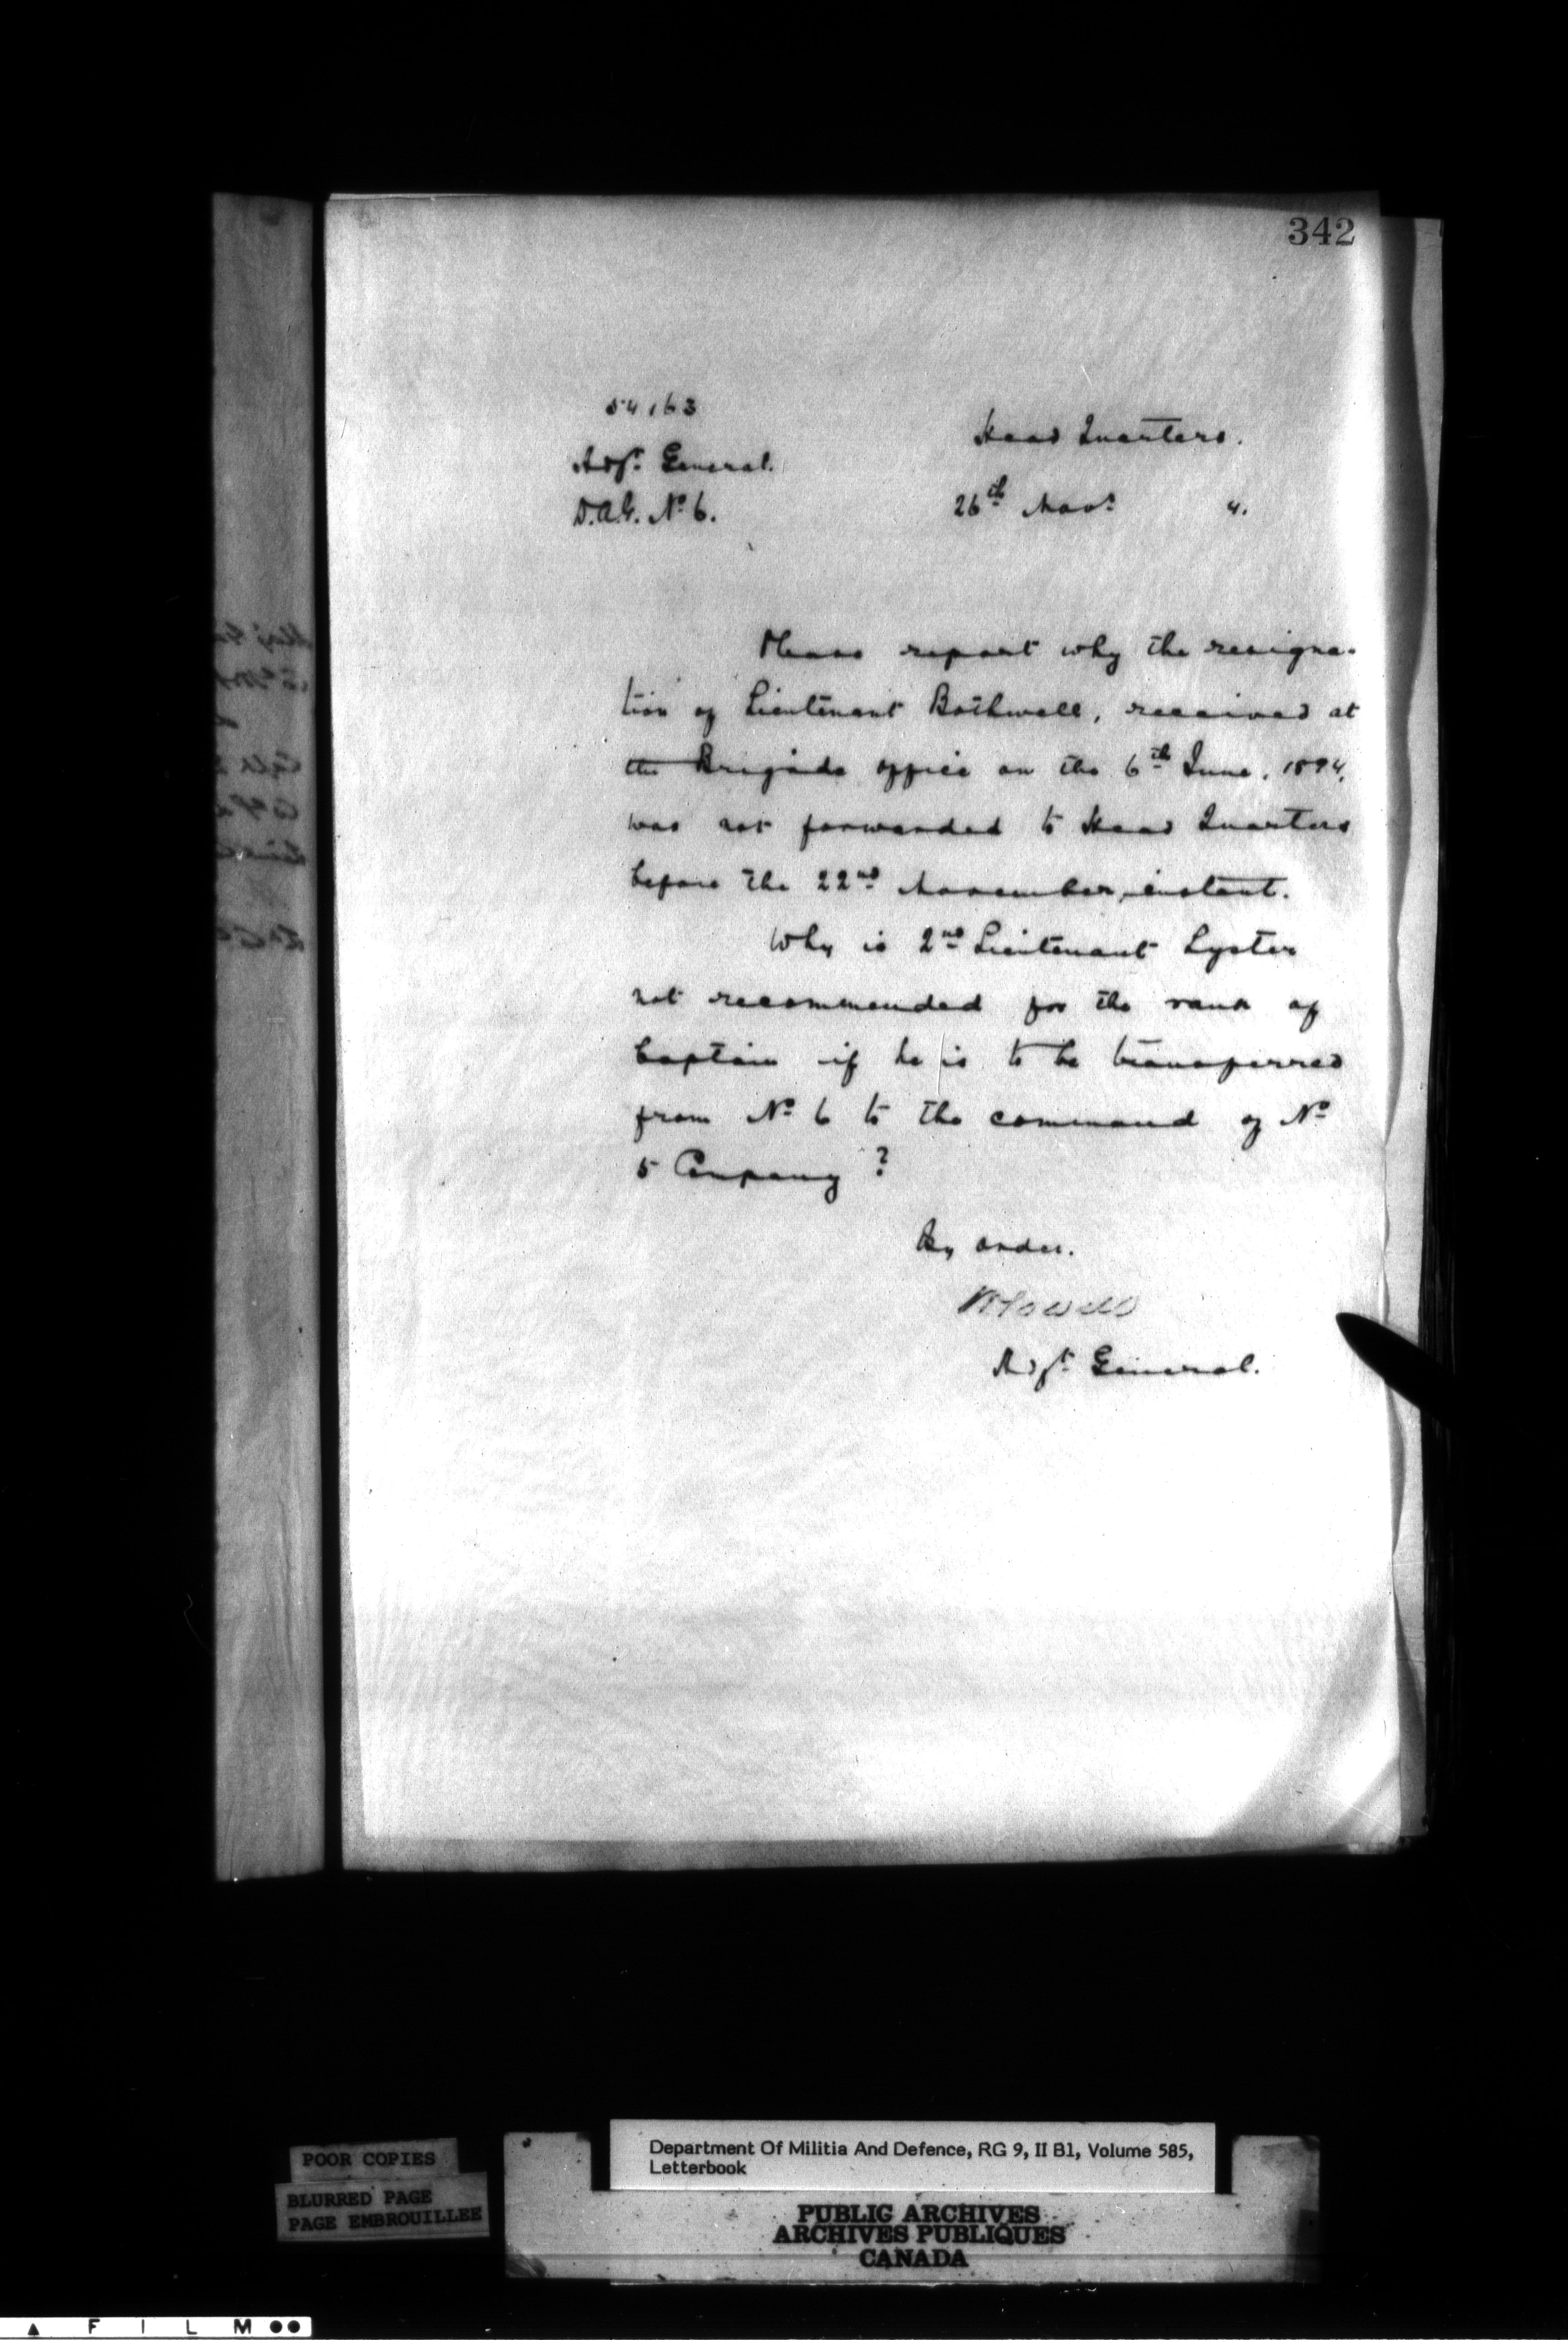 342
54163
Head Quarters.
Adjt. General.
D.A.G. No 6.
26th Novr. 4.
Please report why the resigna-
tion of Lieutenant Bothwell, received at
the Brigade office on the 6th June, 1894,
was not forwarded to Head Quarters
before the 22nd November, instant.
Why is 2nd Lieutenant Lyster
not recommended for the rank of
Captain if he is to be transferred
from No 6 to the command of No
5 Company ?
By order.
Powell
Adjt General.
POOR COPIES
BLURRED PAGE
PAGE EMBROUILLEE
Department Of Militia And Defence, RG 9, II B1, Volume 585,
Letterbook
PUBLIC ARCHIVES
ARCHIVES PUBLIQUES
CANADA
FILM